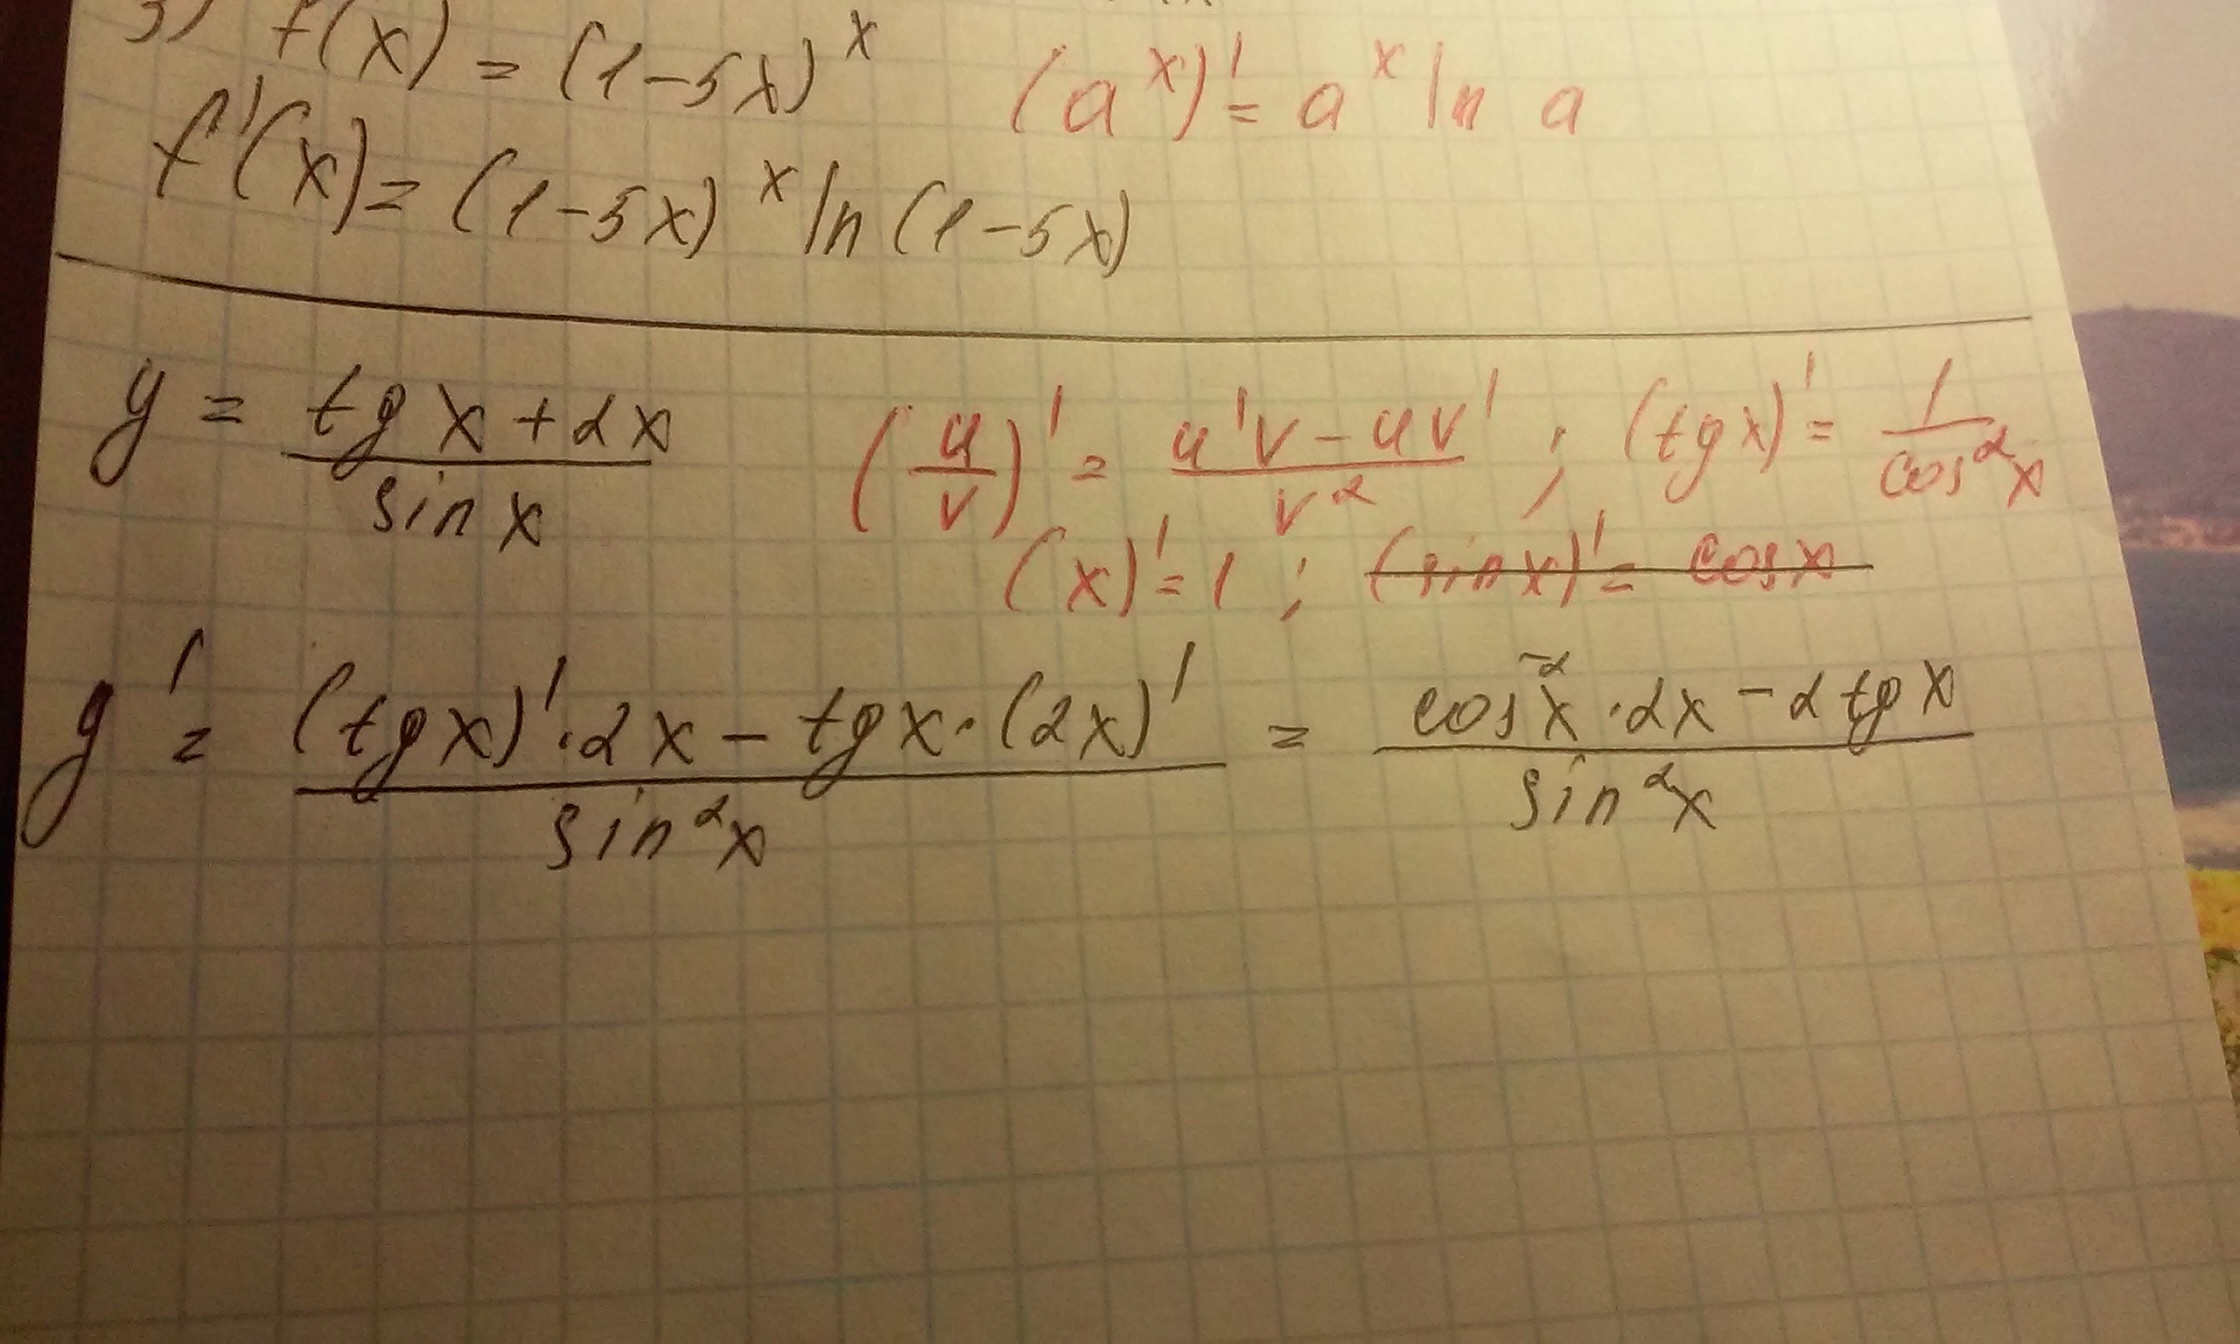 3) f(x) = (1-5x)^x (a^x)' = a^x ln a
f'(x) = (1-5x)^x ln(1-5x)
y = (tg x + 2x)/(sin x) (u/v)' = (u'v - uv')/(v^2) ; (tg x)' = 1/(cos^2 x)
(x)' = 1 ; (sin x)' = cos x
y' = ((tg x)' · 2x - tg x · (2x)')/(sin^2 x) = (cos^-2 x · 2x - 2 tg x)/(sin^2 x)